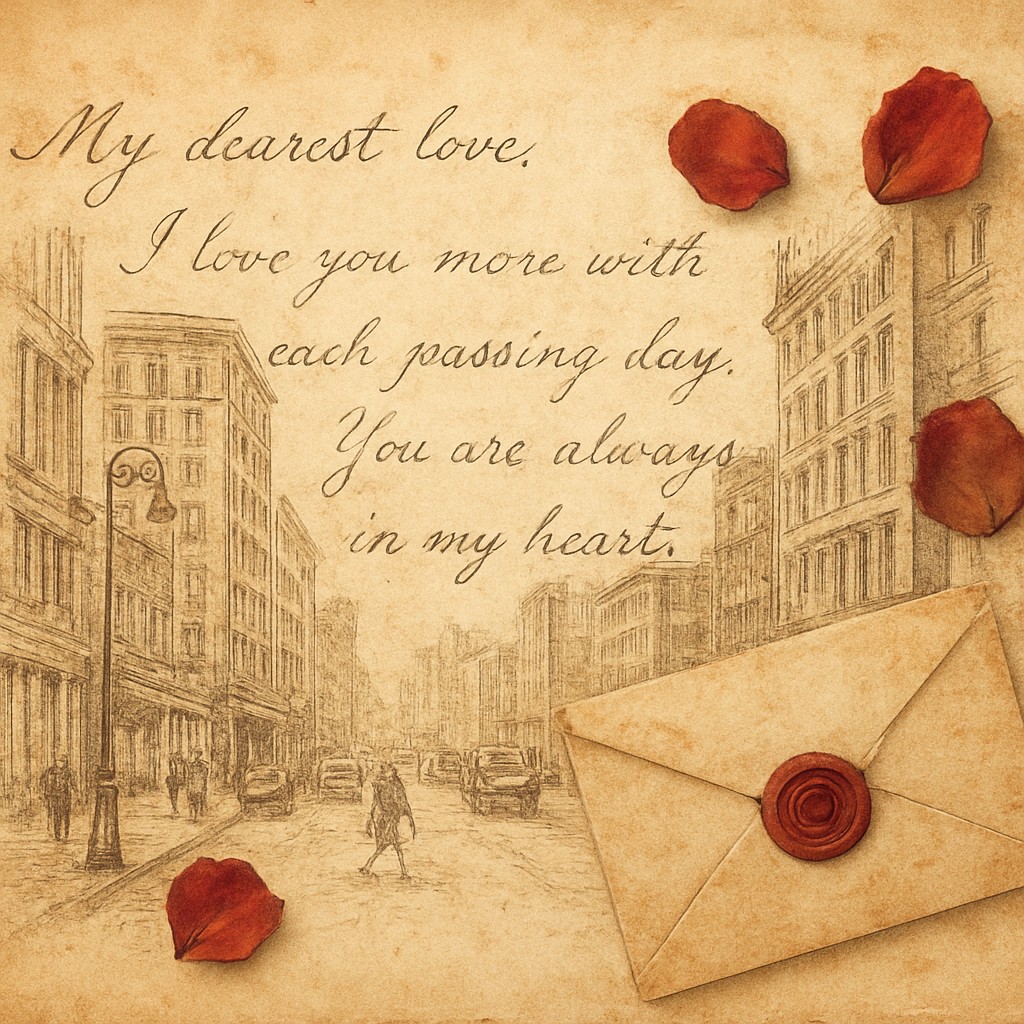 My dearest love.
I love you more with
each passing day.
You are always
in my heart.